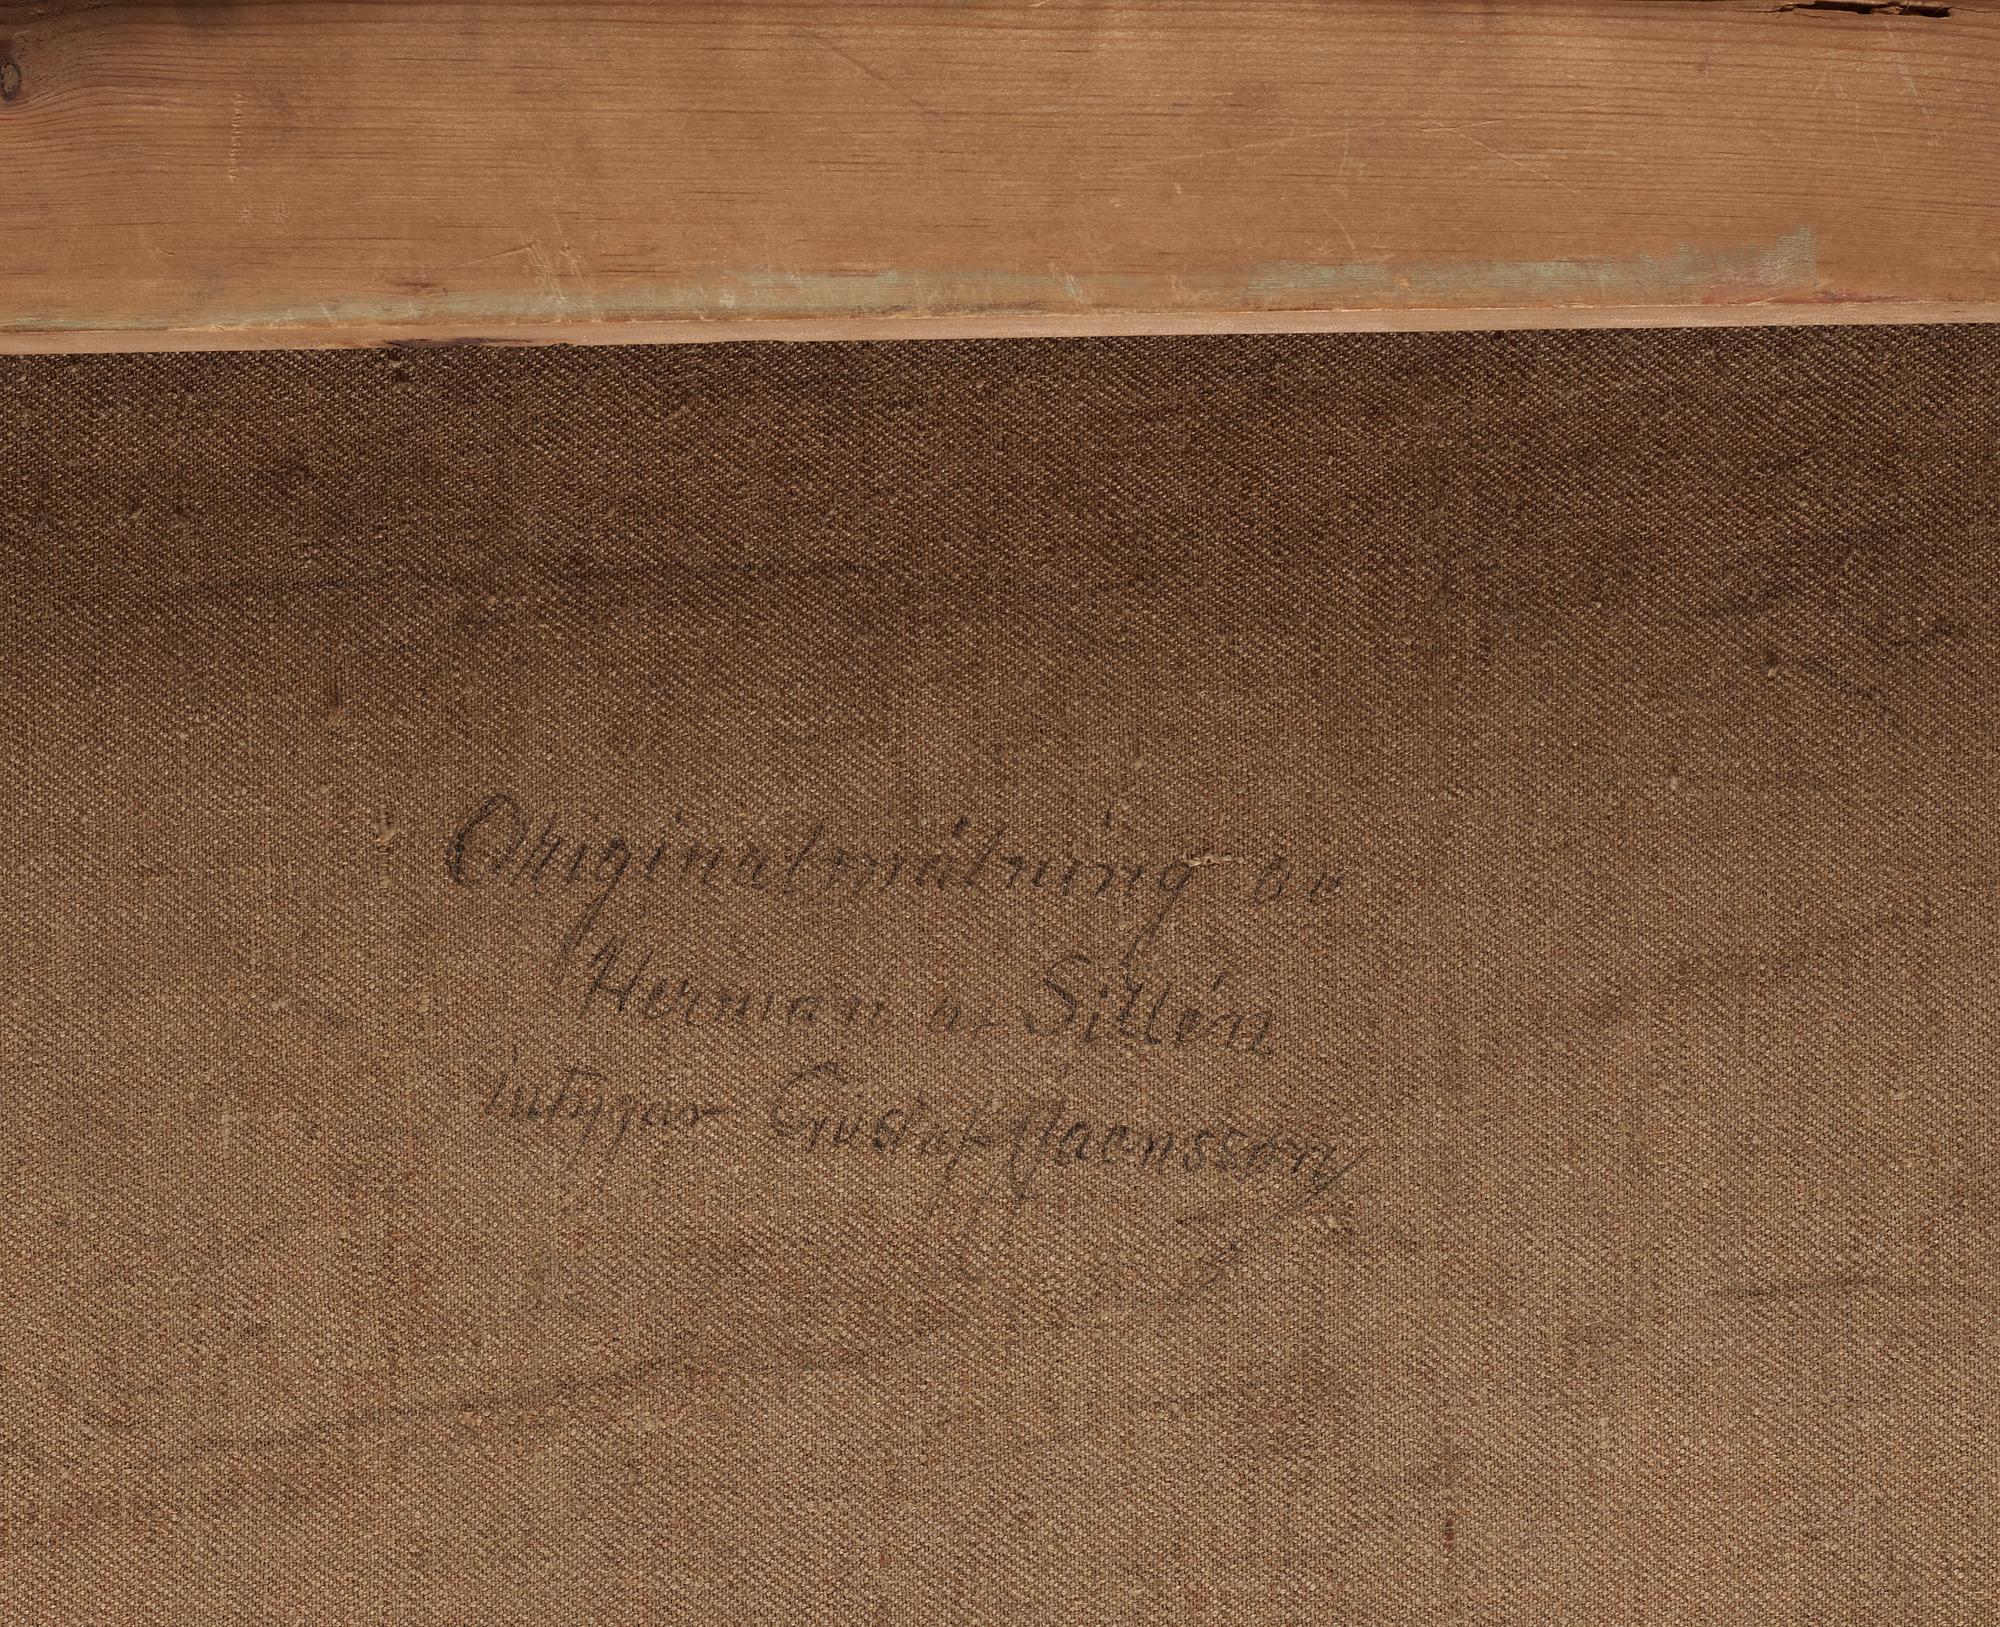 Originalmålning av
Herman av Sillén
intygar Gustaf Jaensson